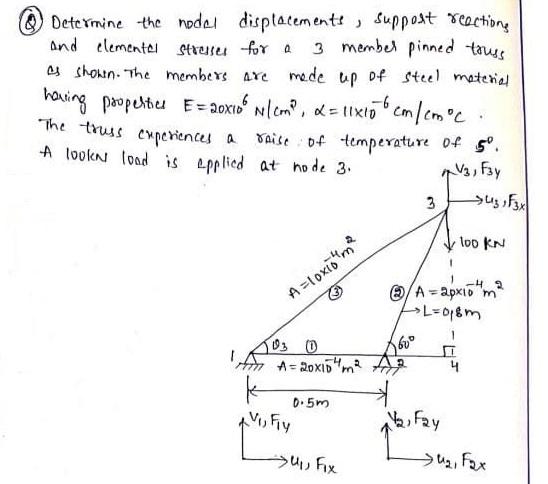 Q Determine the nodal displacements, support reactions
and elemental stresses for a 3 member pinned truss
as shown. The members are made up of steel material
having properties E=20x10⁶ N/cm², α=11x10⁻⁶ cm/cm°C.
The truss experiences a raise of temperature of 5°.
A 100KN load is applied at node 3.
V3, F3y
3
u3, F3x
100 KN
A=10x10⁻⁴m²
③
② A=20x10⁻⁴m²
L=0.8m
1 θ3 ① 60°
A=20x10⁻⁴m² 2 4
0.5m
V1, F1y V2, F2y
u1, F1x u2, F2x